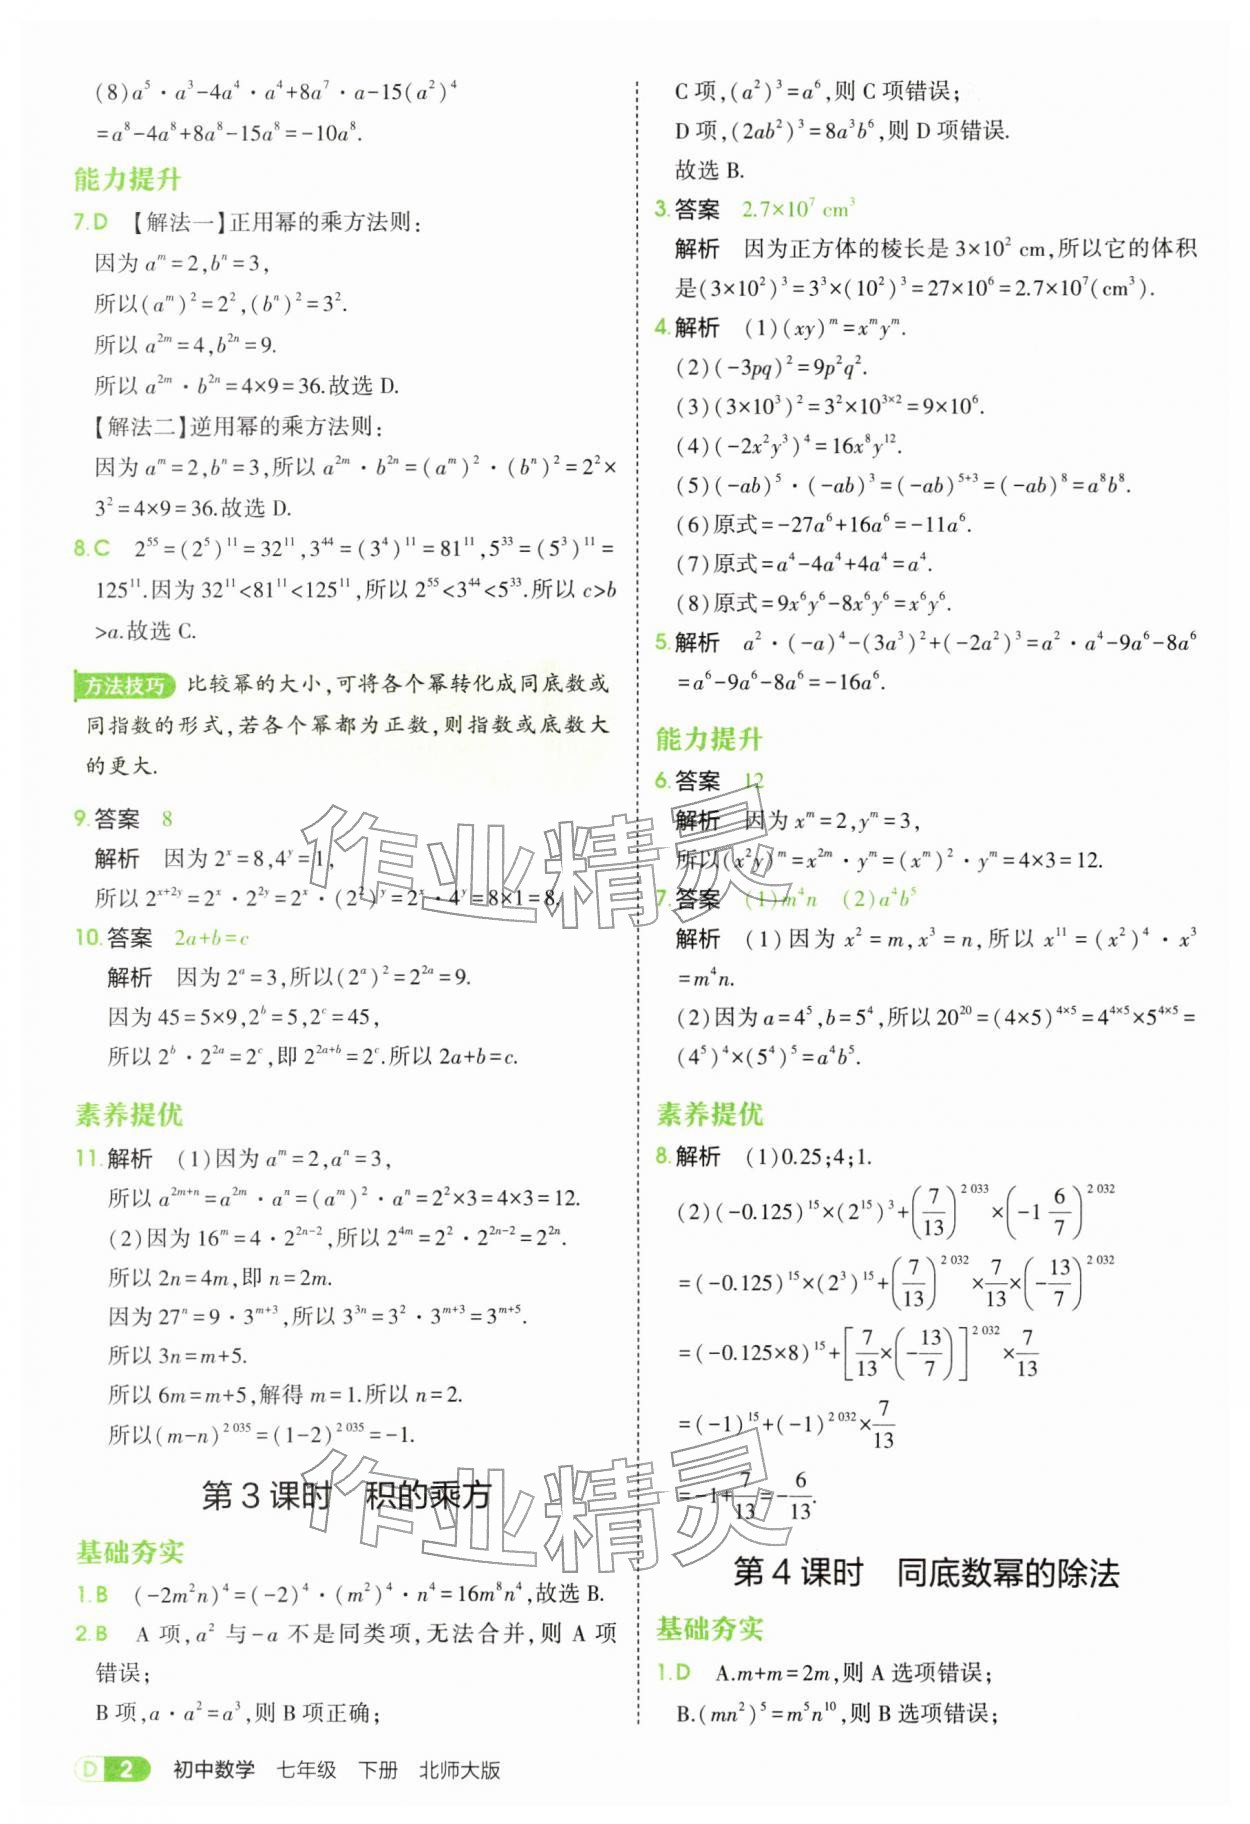 (8)a⁵·a³-4a⁴·a⁴+8a⁷·a-15(a²)⁴
=a⁸-4a⁸+8a⁸-15a⁸=-10a⁸.
能力提升
7.D 【解法一】正用幂的乘方法则:
因为 aᵐ=2,bⁿ=3,
所以(aᵐ)²=2²,(bⁿ)²=3².
所以 a²ᵐ=4,b²ⁿ=9.
所以 a²ᵐ·b²ⁿ=4×9=36.故选 D.
【解法二】逆用幂的乘方法则:
因为 aᵐ=2,bⁿ=3,所以 a²ᵐ·b²ⁿ=(aᵐ)²·(bⁿ)²=2²×
3²=4×9=36.故选 D.
8.C 2⁵⁵=(2⁵)¹¹=32¹¹,3⁴⁴=(3⁴)¹¹=81¹¹,5³³=(5³)¹¹=
125¹¹.因为 32¹¹<81¹¹<125¹¹,所以 2⁵⁵<3⁴⁴<5³³.所以 c>b
>a.故选 C.
方法技巧 比较幂的大小,可将各个幂转化成同底数或
同指数的形式,若各个幂都为正数,则指数或底数大
的更大.
9.答案 8
解析 因为 2ˣ=8,4ʸ=1,
所以 2ˣ⁺²ʸ=2ˣ·2²ʸ=2ˣ·(2²)ʸ=2ˣ·4ʸ=8×1=8.
10.答案 2a+b=c
解析 因为 2ᵃ=3,所以(2ᵃ)²=2²ᵃ=9.
因为 45=5×9,2ᵇ=5,2ᶜ=45,
所以 2ᵇ·2²ᵃ=2ᶜ,即 2²ᵃ⁺ᵇ=2ᶜ.所以 2a+b=c.
素养提优
11.解析 (1)因为 aᵐ=2,aⁿ=3,
所以 a²ᵐ⁺ⁿ=a²ᵐ·aⁿ=(aᵐ)²·aⁿ=2²×3=4×3=12.
(2)因为 16ᵐ=4·2²ⁿ⁻²,所以 2⁴ᵐ=2²·2²ⁿ⁻²=2²ⁿ.
所以 2n=4m,即 n=2m.
因为 27ⁿ=9·3ᵐ⁺³,所以 3³ⁿ=3²·3ᵐ⁺³=3ᵐ⁺⁵.
所以 3n=m+5.
所以 6m=m+5,解得 m=1.所以 n=2.
所以(m-n)²⁰³⁵=(1-2)²⁰³⁵=-1.
第 3 课时 积的乘方
基础夯实
1.B (-2m²n)⁴=(-2)⁴·(m²)⁴·n⁴=16m⁸n⁴,故选 B.
2.B A 项,a² 与-a 不是同类项,无法合并,则 A 项
错误;
B 项,a·a²=a³,则 B 项正确;
C 项,(a²)³=a⁶,则 C 项错误;
D 项,(2ab²)³=8a³b⁶,则 D 项错误.
故选 B.
3.答案 2.7×10⁷ cm³
解析 因为正方体的棱长是 3×10² cm,所以它的体积
是(3×10²)³=3³×(10²)³=27×10⁶=2.7×10⁷(cm³).
4.解析 (1)(xy)ᵐ=xᵐyᵐ.
(2)(-3pq)²=9p²q².
(3)(3×10³)²=3²×10³ˣ²=9×10⁶.
(4)(-2x²y³)⁴=16x⁸y¹².
(5)(-ab)⁵·(-ab)³=(-ab)⁵⁺³=(-ab)⁸=a⁸b⁸.
(6)原式=-27a⁶+16a⁶=-11a⁶.
(7)原式=a⁴-4a⁴+4a⁴=a⁴.
(8)原式=9x⁶y⁶-8x⁶y⁶=x⁶y⁶.
5.解析 a²·(-a)⁴-(3a³)²+(-2a²)³=a²·a⁴-9a⁶-8a⁶
=a⁶-9a⁶-8a⁶=-16a⁶.
能力提升
6.答案 12
解析 因为 xᵐ=2,yᵐ=3,
所以(x²y)ᵐ=x²ᵐ·yᵐ=(xᵐ)²·yᵐ=4×3=12.
7.答案 (1)m⁴n (2)a⁴b⁵
解析 (1)因为 x²=m,x³=n,所以 x¹¹=(x²)⁴·x³
=m⁴n.
(2)因为 a=4⁵,b=5⁴,所以 20²⁰=(4×5)⁴ˣ⁵=4⁴ˣ⁵×5⁴ˣ⁵=
(4⁵)⁴×(5⁴)⁵=a⁴b⁵.
素养提优
8.解析 (1)0.25;4;1.
(2)(-0.125)¹⁵×(2¹⁵)³+(7/13)²⁰³³×(-1 6/7)²⁰³²
=(-0.125)¹⁵×(2³)¹⁵+(7/13)²⁰³²×7/13×(-13/7)²⁰³²
=(-0.125×8)¹⁵+[7/13×(-13/7)]²⁰³²×7/13
=(-1)¹⁵+(-1)²⁰³²×7/13
=-1+7/13=-6/13.
第 4 课时 同底数幂的除法
基础夯实
1.D A.m+m=2m,则 A 选项错误;
B.(mn²)⁵=m⁵n¹⁰,则 B 选项错误;
D 2 初中数学 七年级 下册 北师大版
作业精灵
作业精灵